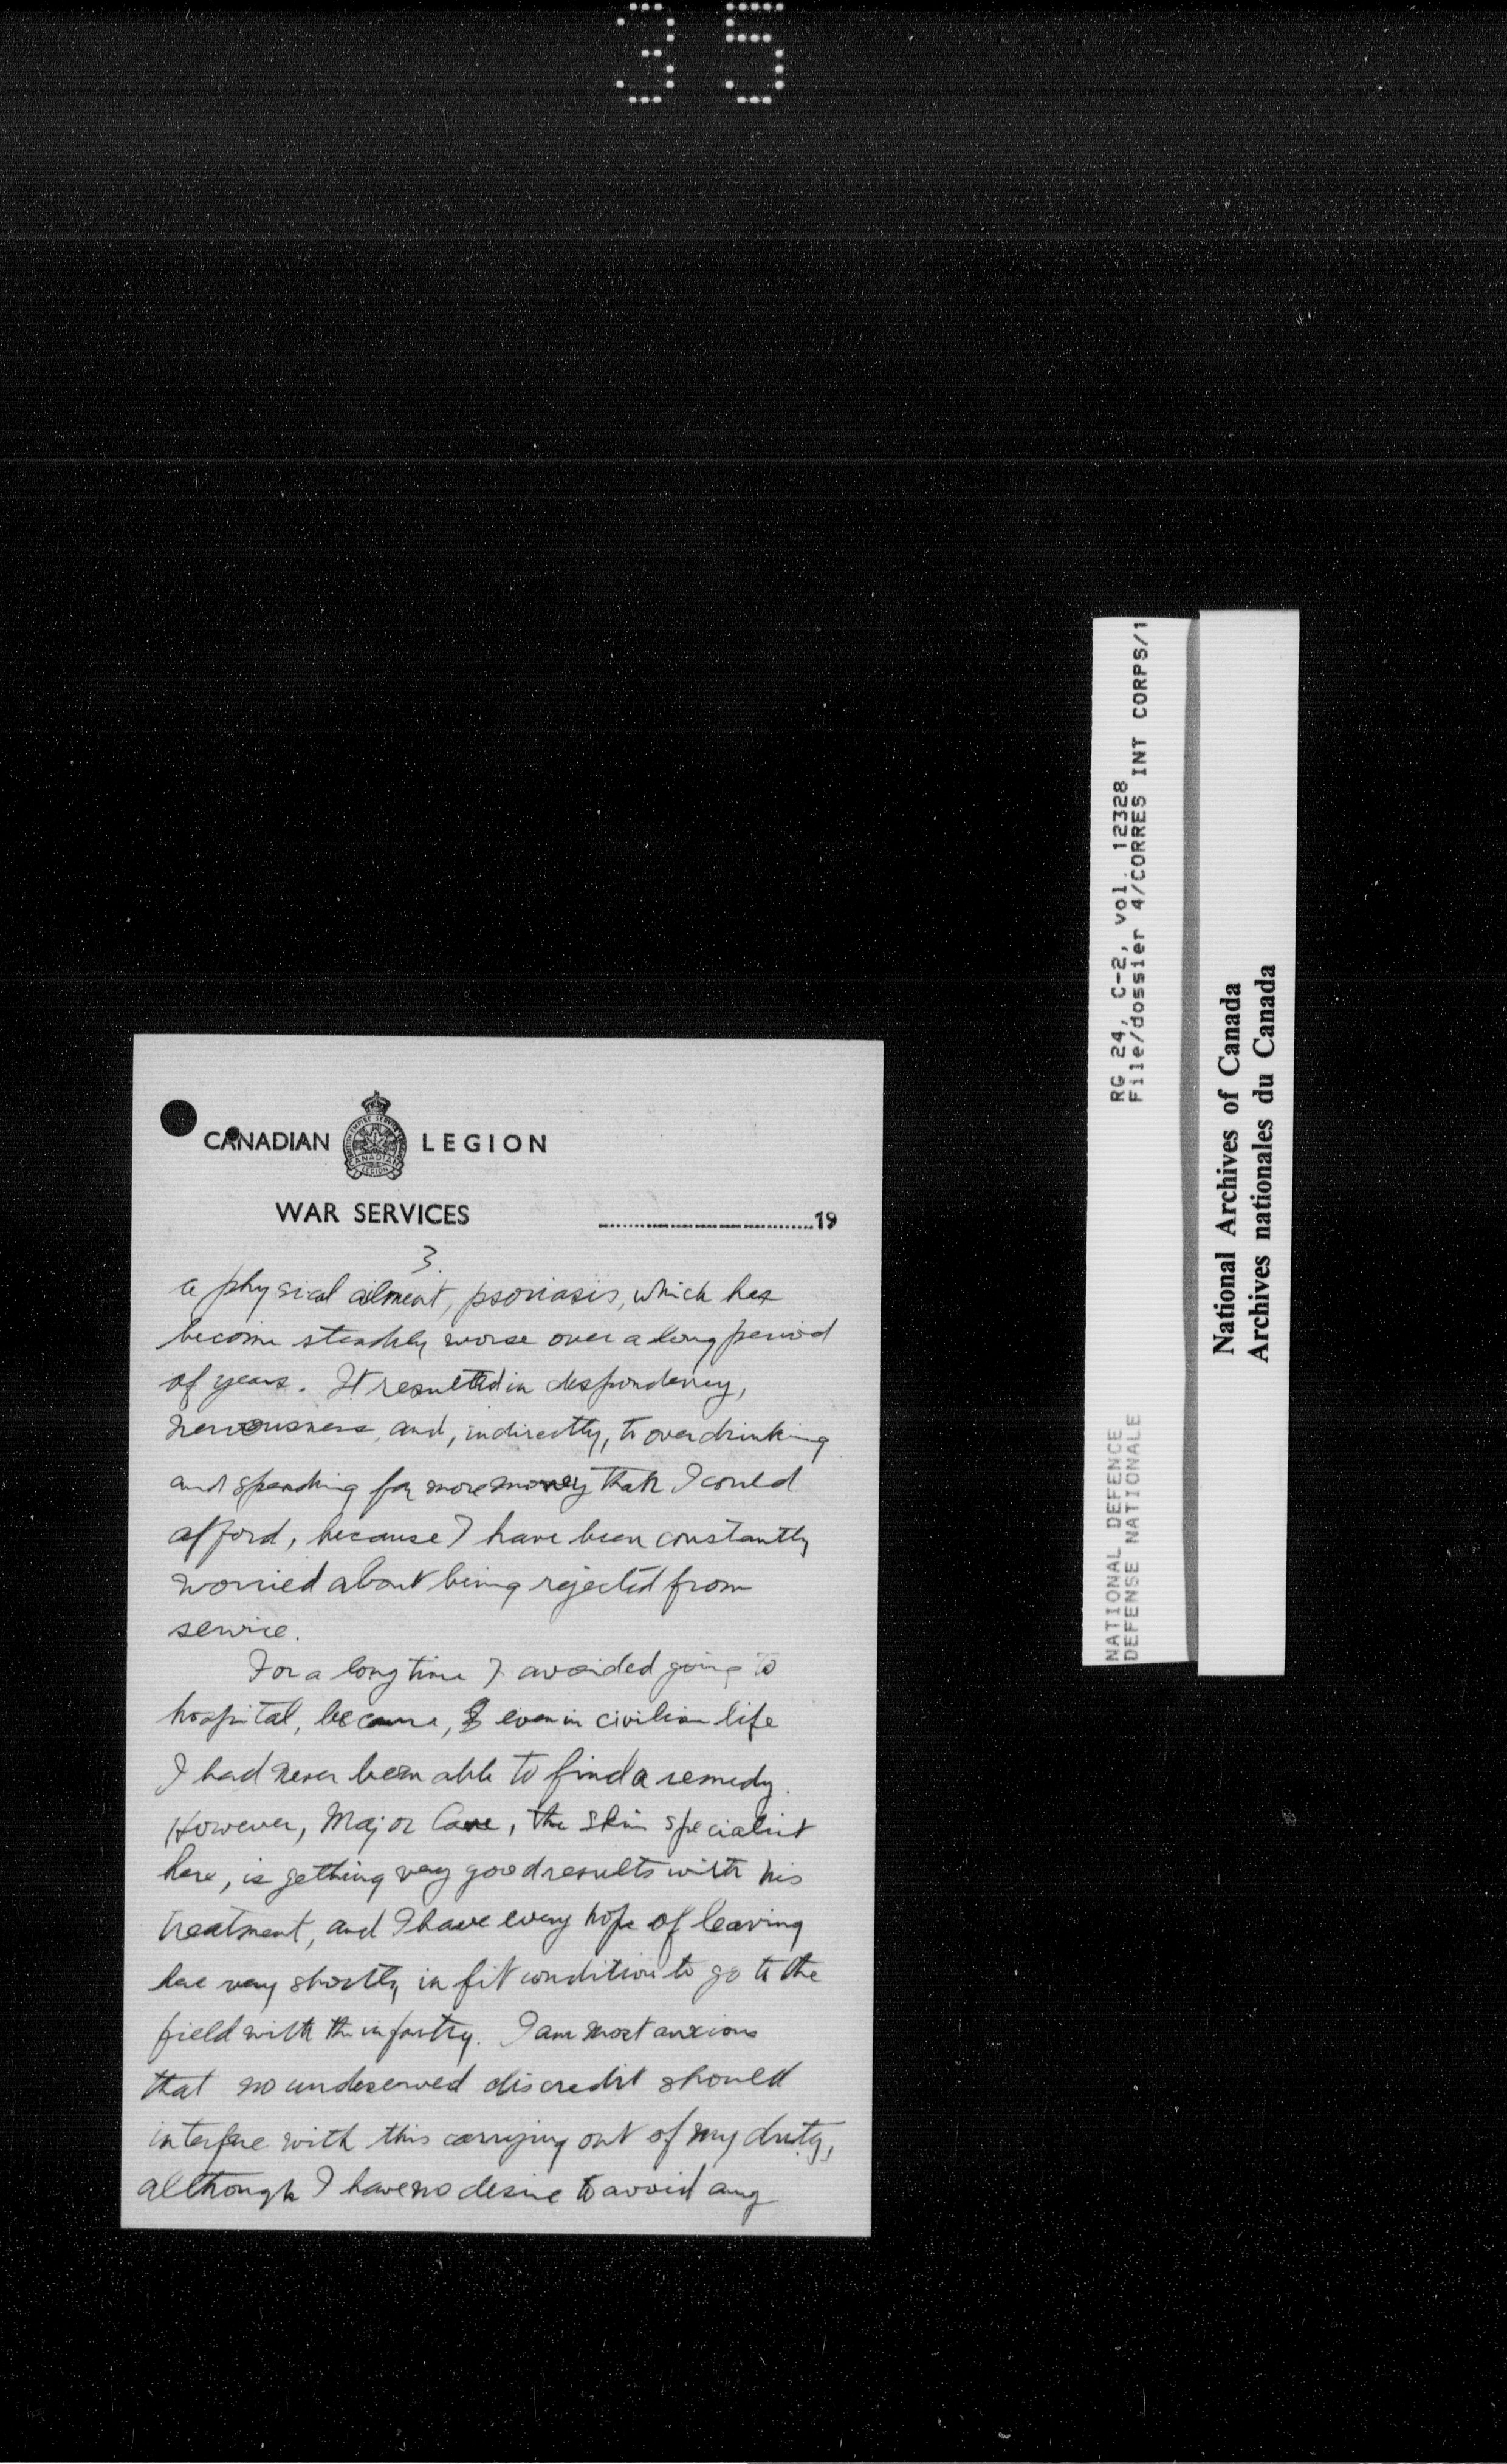 35
CANADIAN LEGION
CANADIAN
LEGION
WAR SERVICES
19
3.
a physical ailment, psoriasis, which has
become steadily worse over a long period
of years. It resulted in despondency,
nervousness, and, indirectly, to overdrinking
and spending far more money than I could
afford, because I have been constantly
worried about being rejected from
service.
For a long time I avoided going to
hospital, because, even in civilian life
I had never been able to find a remedy.
However, Major, the skin specialist
here, is getting very good results with his
treatment, and I have every hope of leaving
here very shortly in fit condition to go to the
field with the infantry. I am most anxious
that no undeserved discredit should
interfere with this carrying out of my duty,
although I have no desire to avoid any
RG 24, C-2, vol. 12328
File/dossier 4/CORRES INT CORPS/1
NATIONAL DEFENCE
DEFENSE NATIONALE
National Archives of Canada
Archives nationales du Canada